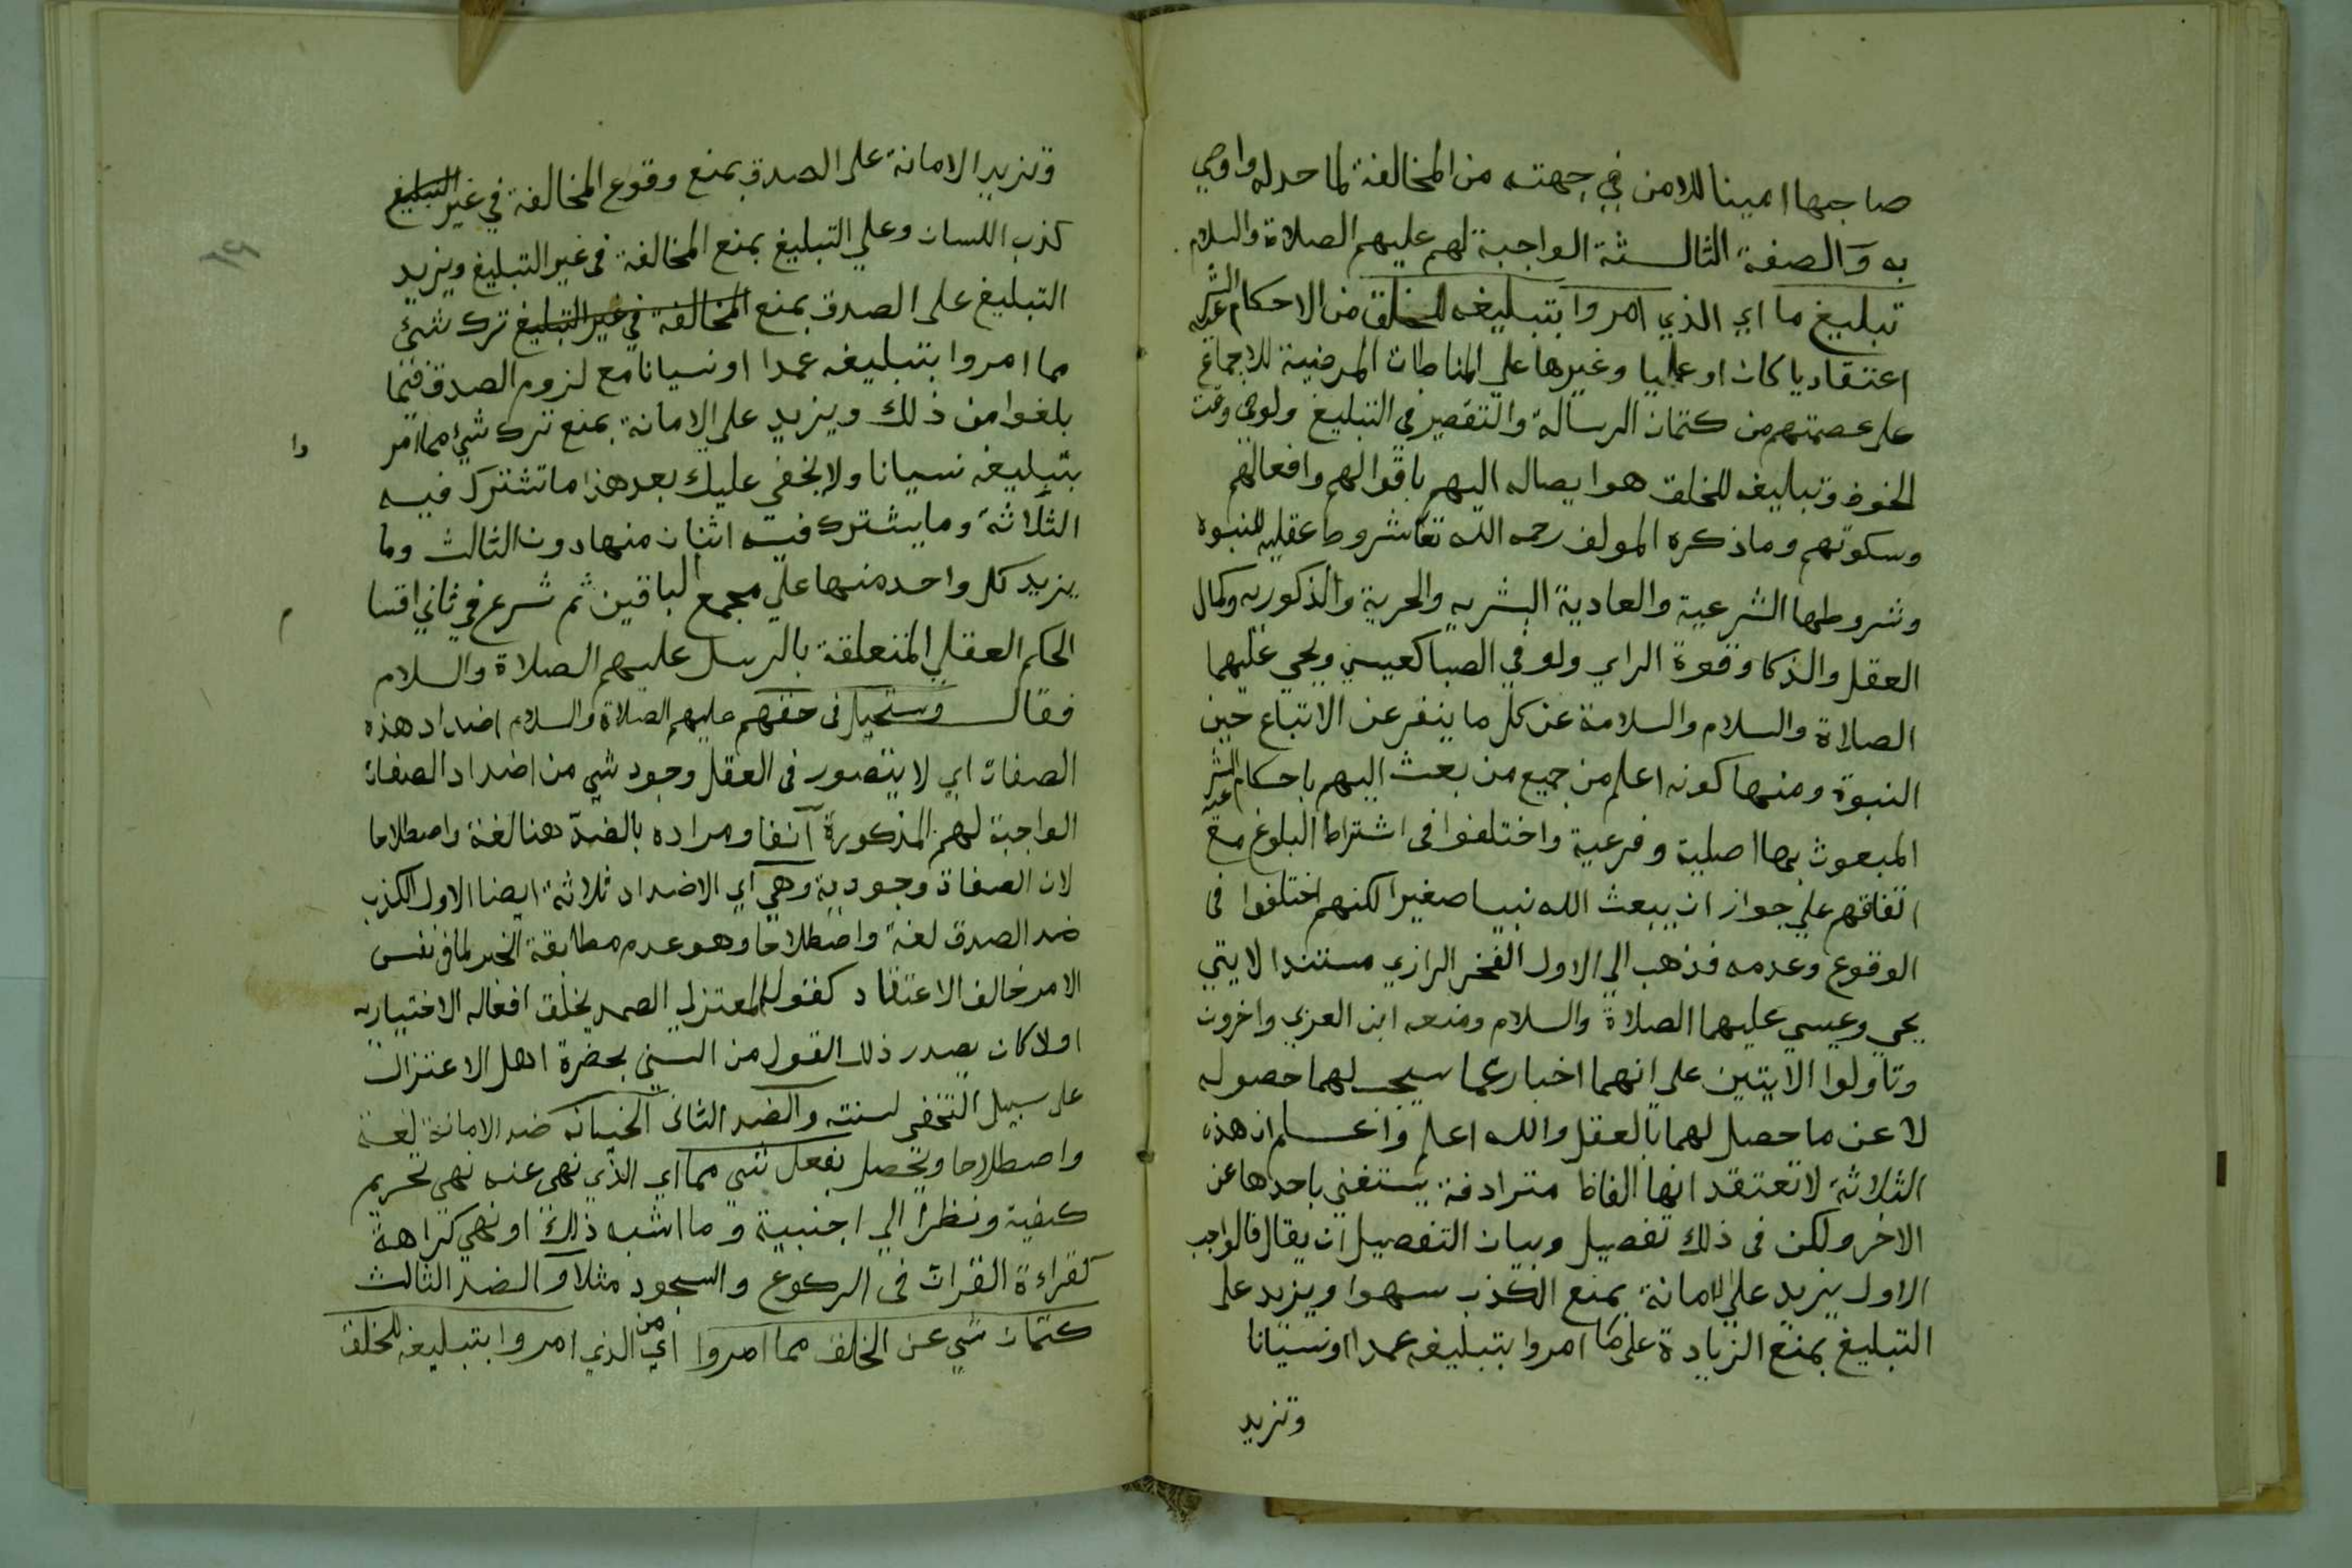 صاحبها امينا للامن في جهته من المخالفة لما حد له واوصي
به والصفة الثالثة الواجبة لهم عليهم الصلاة والسلام
تبليغ ما اي الذي امروا بتبليغه للخلق من الاحكام الشرعيه
اعتقاديا كان او عمليا وغيرها علي المناطات المرضية للاجماع
على عصمتهم من كتمان الرسالة والتقصير في التبليغ ولو في وقت
الخوف وتبليغه للخلق هو ايصاله اليهم باقوالهم وافعالهم
وسكوتهم وما ذكره المولف رحمه الله تعا شروط عقليه للنبوة
وشروطها الشرعية والعادية البشريه والحرية والذكوريه وكمال
العقل والذكا وقوة الراي ولو في الصبا كعيسي ويحي عليهما
الصلاة والسلام والسلامة عن كل ما ينفر عن الاتباع حين
النبوة ومنها كونه اعلم من جميع من بعث اليهم باحكام الشرعيه
المبعوث بها اصلية وفرعية واختلفوا في اشتراط البلوغ مع
اتفاقهم علي جواز ان يبعث الله نبيا صغيرا لكنهم اختلفوا في
الوقوع وعدمه فذهب الي الاول الفخر الرازي مستندا لايتي
يحي وعيسي عليهما الصلاة والسلام ومنعه ابن العربي واخرون
وتاولوا الايتين على انهما اخبار عما سيجب لهما حصوله
لا عن ما حصل لهما بالعقل والله اعلم واعلم ان هذه
الثلاثة لا تعتقد انها الفاظ مترادفة يستغني باحدها عن
الاخر ولكن في ذلك تفصيل وبيان التفصيل ان يقال فالواجب
الاول يزيد علي الامانة بمنع الكذب سهوا ويزيد على
التبليغ بمنع الزيادة على ما امروا بتبليغه عمدا او نسيانا
وتزيد
وتزيد الامانة على الصدق بمنع وقوع المخالفة في غير التبليغ
كذب اللسان وعلي التبليغ بمنع المخالفة في غير التبليغ ويزيد
التبليغ على الصدق بمنع المخالفة في غير التبليغ ترك شئ
مما امروا بتبليغه عمدا او نسيانا مع لزوم الصدق فيما
بلغوا من ذلك ويزيد على الامانة بمنع ترك شئ مما امر
وا
بتبليغه نسيانا ولا يخفي عليك بعد هذا ما تشترك فيه
الثلاثة وما يشترك فيه اثنان منها دون الثالث وما
يزيد كل واحد منها علي مجمع الباقين ثم شرع في ثاني اقسا
م
الحكم العقلي المتعلقة بالرسل عليهم الصلاة والسلام
فقال ويستحيل في حقهم عليهم الصلاة والسلام اضداد هذه
الصفات اي لا يتصور في العقل وجود شي من اضداد الصفات
الواجبة لهم المذكورة آنفا ومراده بالضد هنا لغة واصطلاحا
لان الصفاة وجودية وهي اي الاضداد ثلاثة ايضا الاول الكذب
ضد الصدق لغة واصطلاحا وهو عدم مطابقة الخبر لما في نفس
الامر خالف الاعتقاد كقول المعتزلي يخلق افعاله الاختياريه
اولا كان يصدر ذلك القول من السني بحضرة اهل الاعتزال
على سبيل التخفي لسنته والضد الثاني الخيانه ضد الامانة لغة
واصطلاحا وتحصل بفعل شي مما اي الذي نهي عنه نهي تحريم
كغيبة ونظر الي اجنبية وما اشبه ذلك او نهي كراهة
كقراءة القران في الركوع والسجود مثلا والضد الثالث
كتمان شي عن الخلق مما امروا اي من الذي امروا بتبليغه للخلق